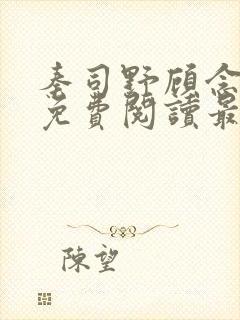 秦司野顾念
免費閱讀最
陳望